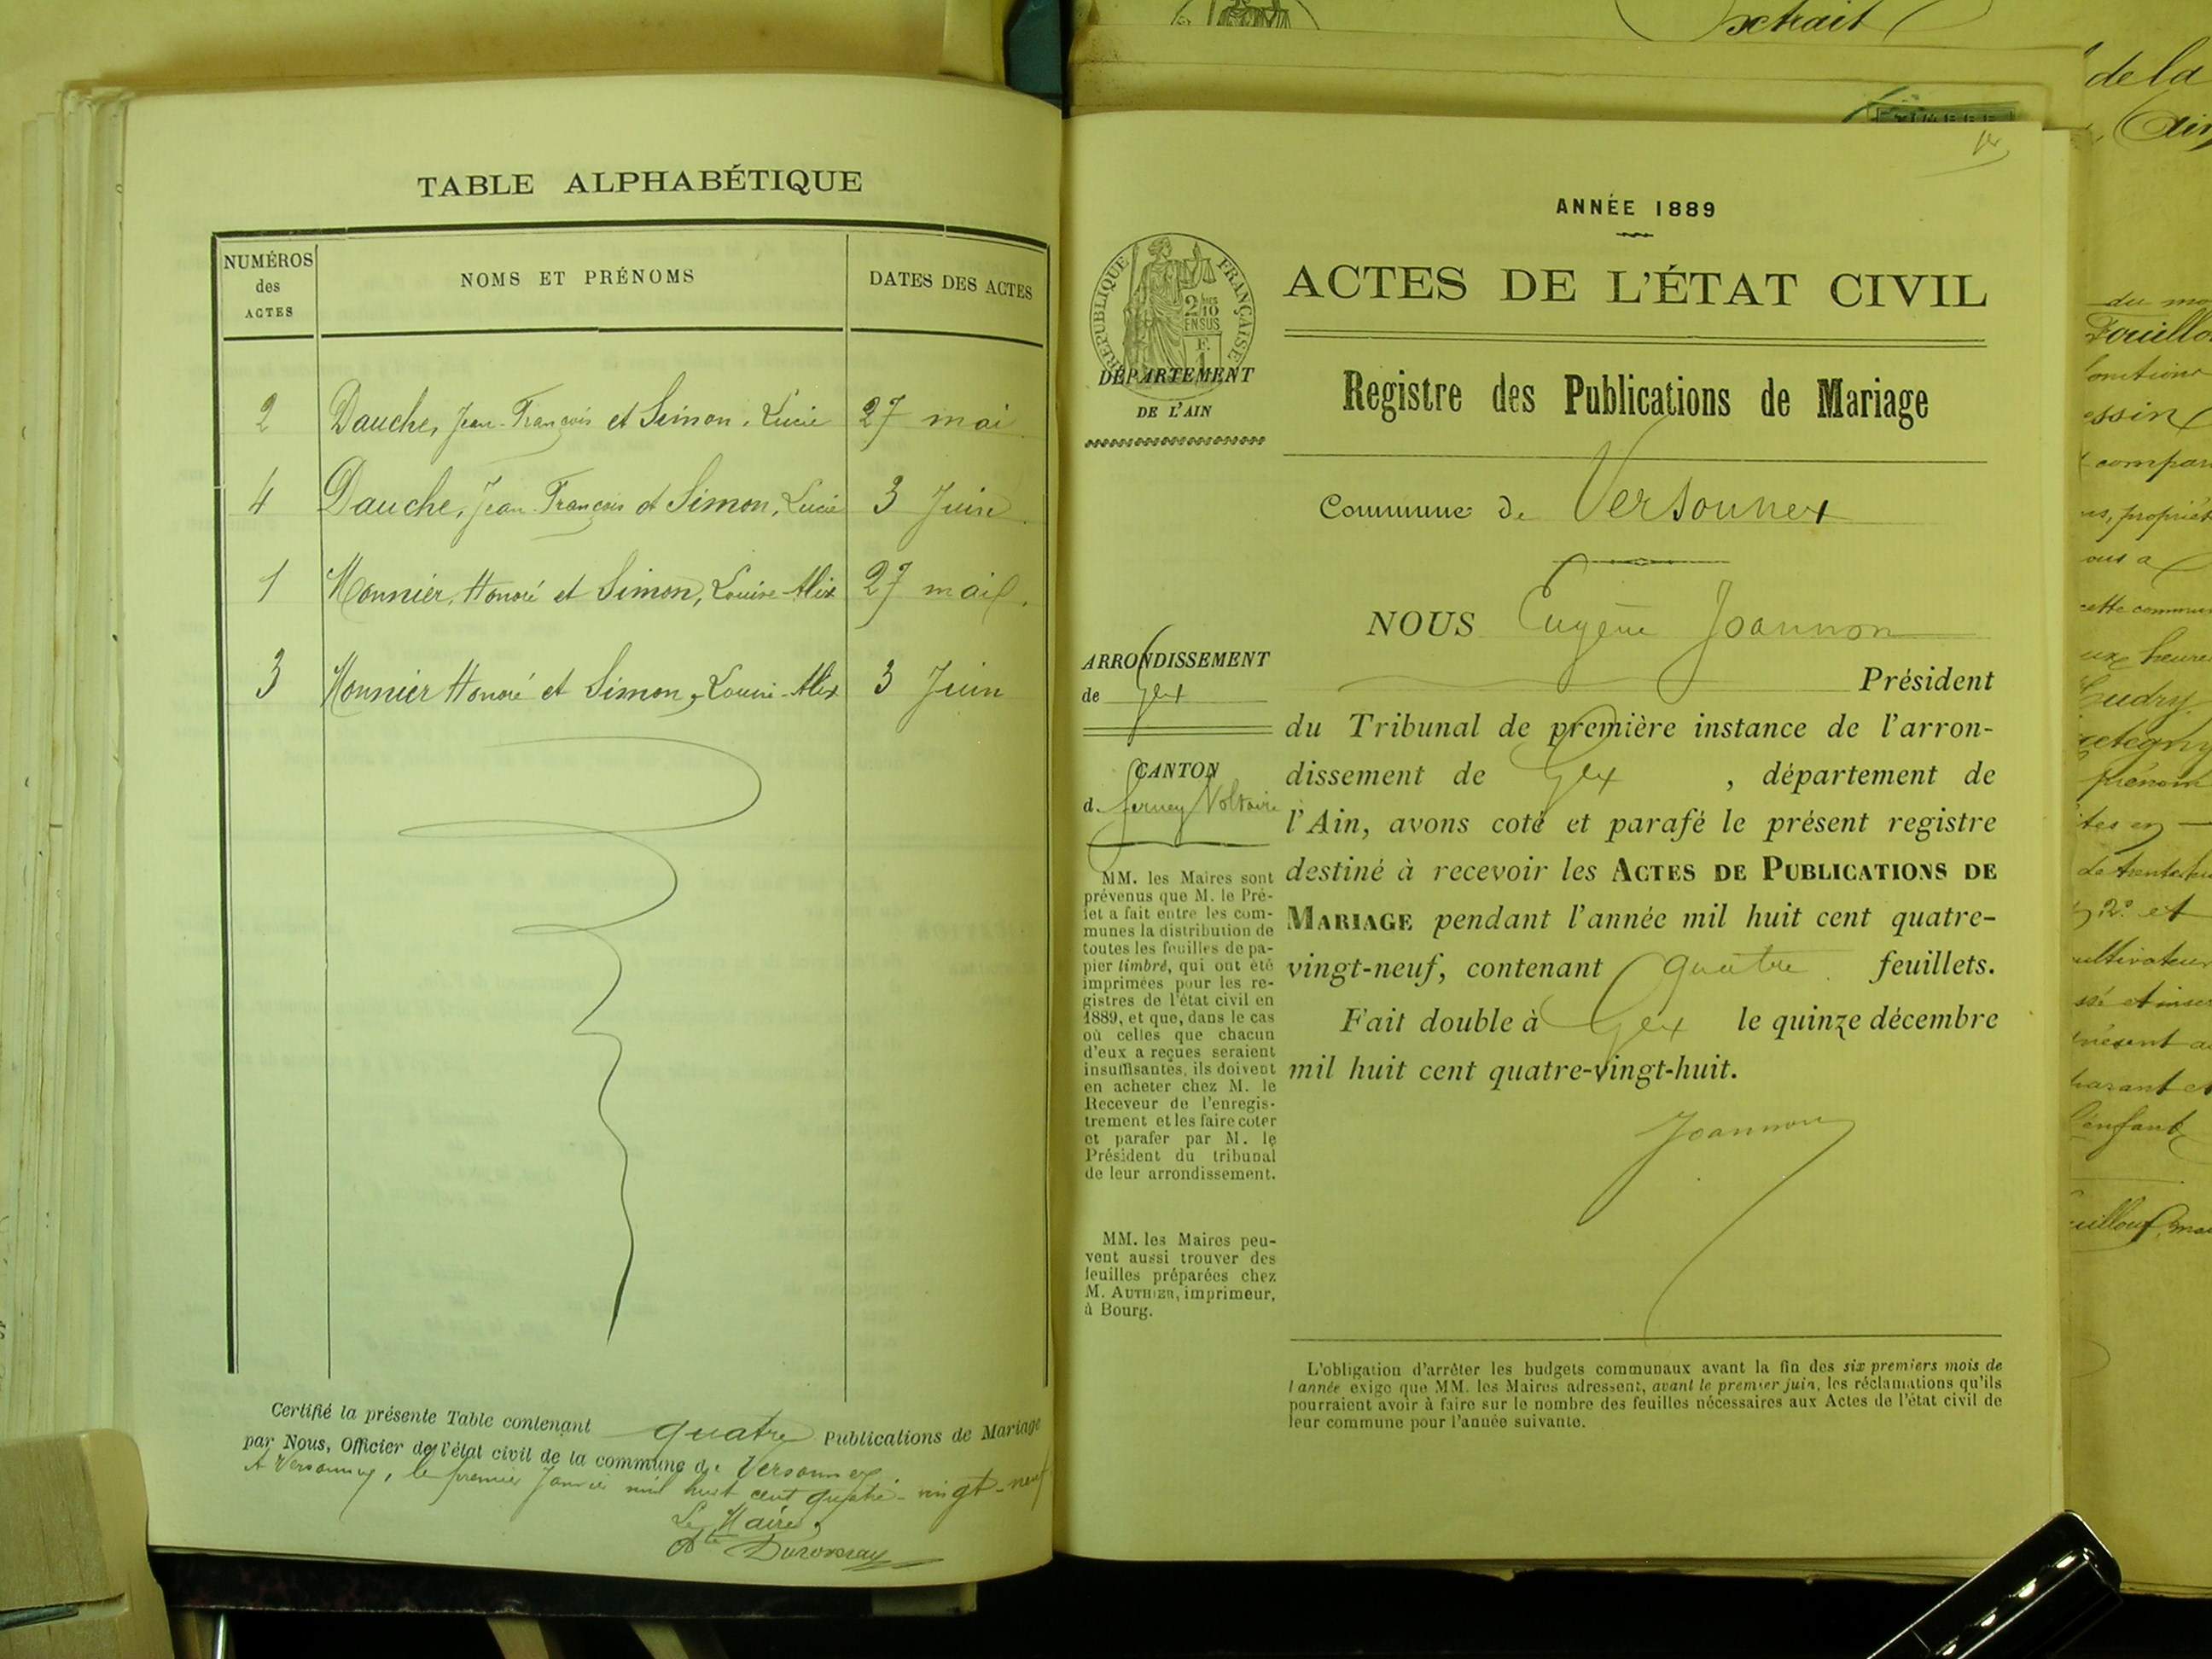 TABLE ALPHABÉTIQUE
NUMÉROS
des
ACTES
NOMS ET PRÉNOMS
DATES DES ACTES
2 Dauche, Jean-François et Simon, Lucie 27 mai
4 Dauche, Jean-François et Simon, Lucie 3 Juin
1 Monnier, Honoré et Simon, Louise-Alix 27 mai
3 Monnier Honoré et Simon, Louise-Alix 3 Juin
Certifié la présente Table contenant quatre Publications de Mariage
par Nous, Officier de l'état civil de la commune de Versonnex
A Versonnex, le premier Janvier mil huit cent quatre-vingt-neuf
Le Maire,
ANNÉE 1889
RÉPUBLIQUE FRANÇAISE
2/10
EN SUS
F.
1
DÉPARTEMENT
DE L'AIN
ACTES DE L'ÉTAT CIVIL
Registre des Publications de Mariage
Commune de Versonnex
NOUS Eugène Joannon
Président
du Tribunal de première instance de l'arron-
dissement de Gex , département de
l'Ain, avons coté et parafé le présent registre
destiné à recevoir les ACTES DE PUBLICATIONS DE
MARIAGE pendant l'année mil huit cent quatre-
vingt-neuf, contenant quatre feuillets.
Fait double à Gex le quinze décembre
mil huit cent quatre-vingt-huit.
Joannon
ARRONDISSEMENT
de Gex
CANTON
de Ferney Voltaire
MM. les Maires sont
prévenus que M. le Pré-
fet a fait entre les com-
munes la distribution de
toutes les feuilles de pa-
pier timbré, qui ont été
imprimées pour les re-
gistres de l'état civil en
1889, et que, dans le cas
où celles que chacun
d'eux a reçues seraient
insuffisantes, ils doivent
en acheter chez M. le
Receveur de l'enregis-
trement et les faire coter
et parafer par M. le
Président du tribunal
de leur arrondissement.
MM. les Maires peu-
vent aussi trouver des
feuilles préparées chez
M. AUTHIER, imprimeur,
à Bourg.
L'obligation d'arrêter les budgets communaux avant la fin des six premiers mois de
l'année exige que MM. les Maires adressent, avant le premier juin, les réclamations qu'ils
pourraient avoir à faire sur le nombre des feuilles nécessaires aux Actes de l'état civil de
leur commune pour l'année suivante.
de la
cette
heure
prénom
2° et
l'enfant